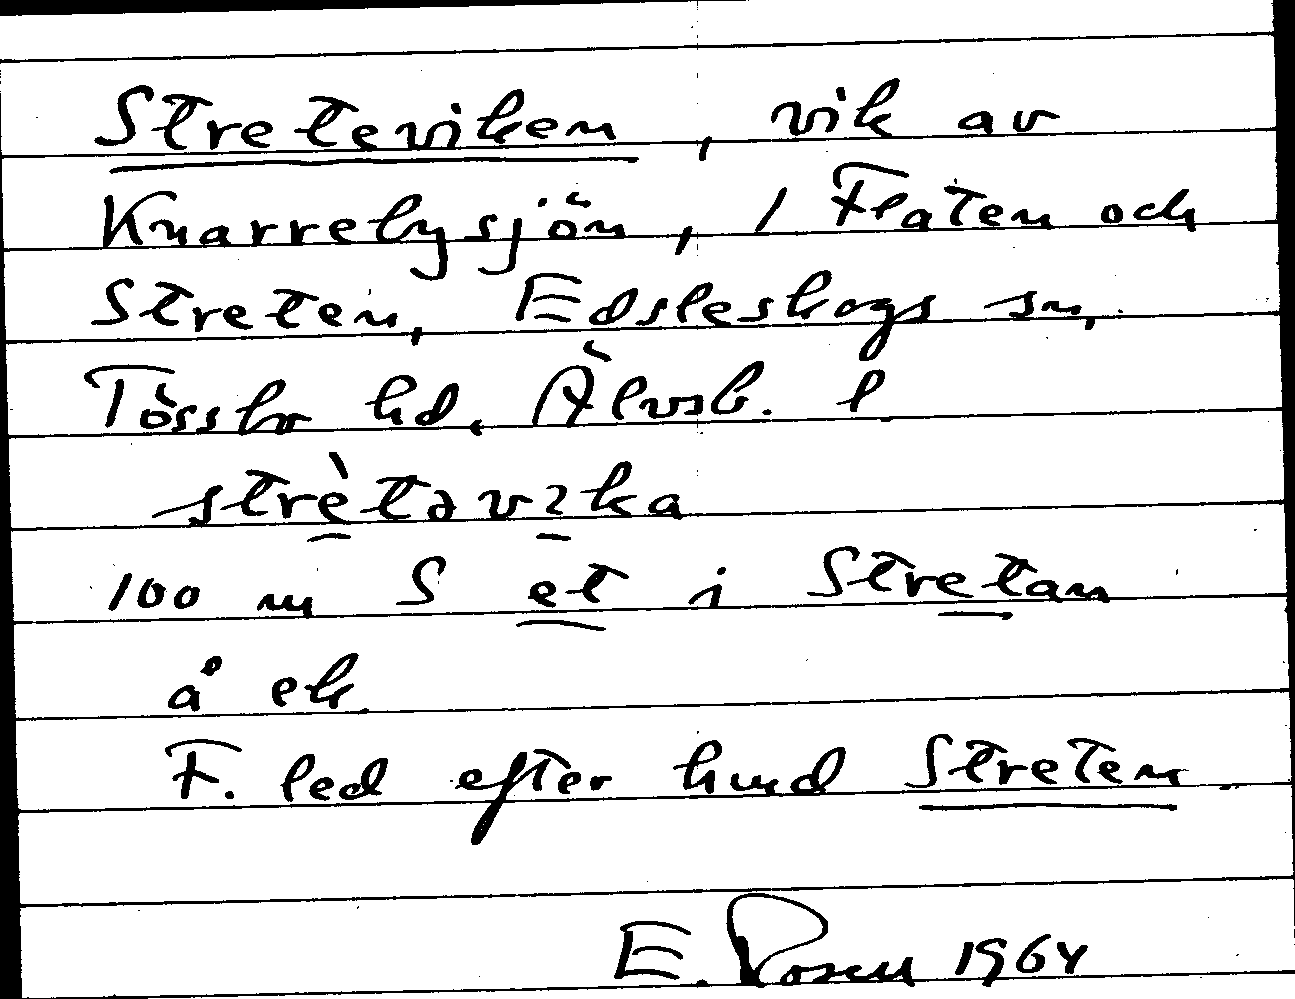 Streteviken, vik av
Knarrebysjön, / Flaten och
Streten, Edsleskogs sn,
Tössbo hd. Älvsb. l
strètəvika
100 m S et i Stretan
å ek
F. led efter hmd Streten
E. Rosen 1964